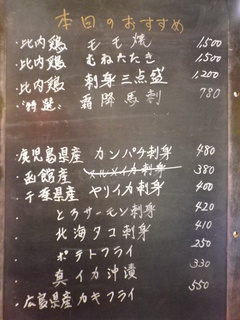 本日のおすすめ
・比内鶏 モモ焼 1,500
・比内鶏 むねたたき 1,500
・比内鶏 刺身三点盛 1,200
"特選" 霜降馬刺 780
・鹿児島県産 カンパチ刺身 480
・函館産 スルメイカ刺身 380
・千葉県産 ヤリイカ刺身 400
・とろサーモン刺身 420
・北海タコ刺身 410
・ポテトフライ 250
・真イカ沖漬 330
・広島県産カキフライ 550